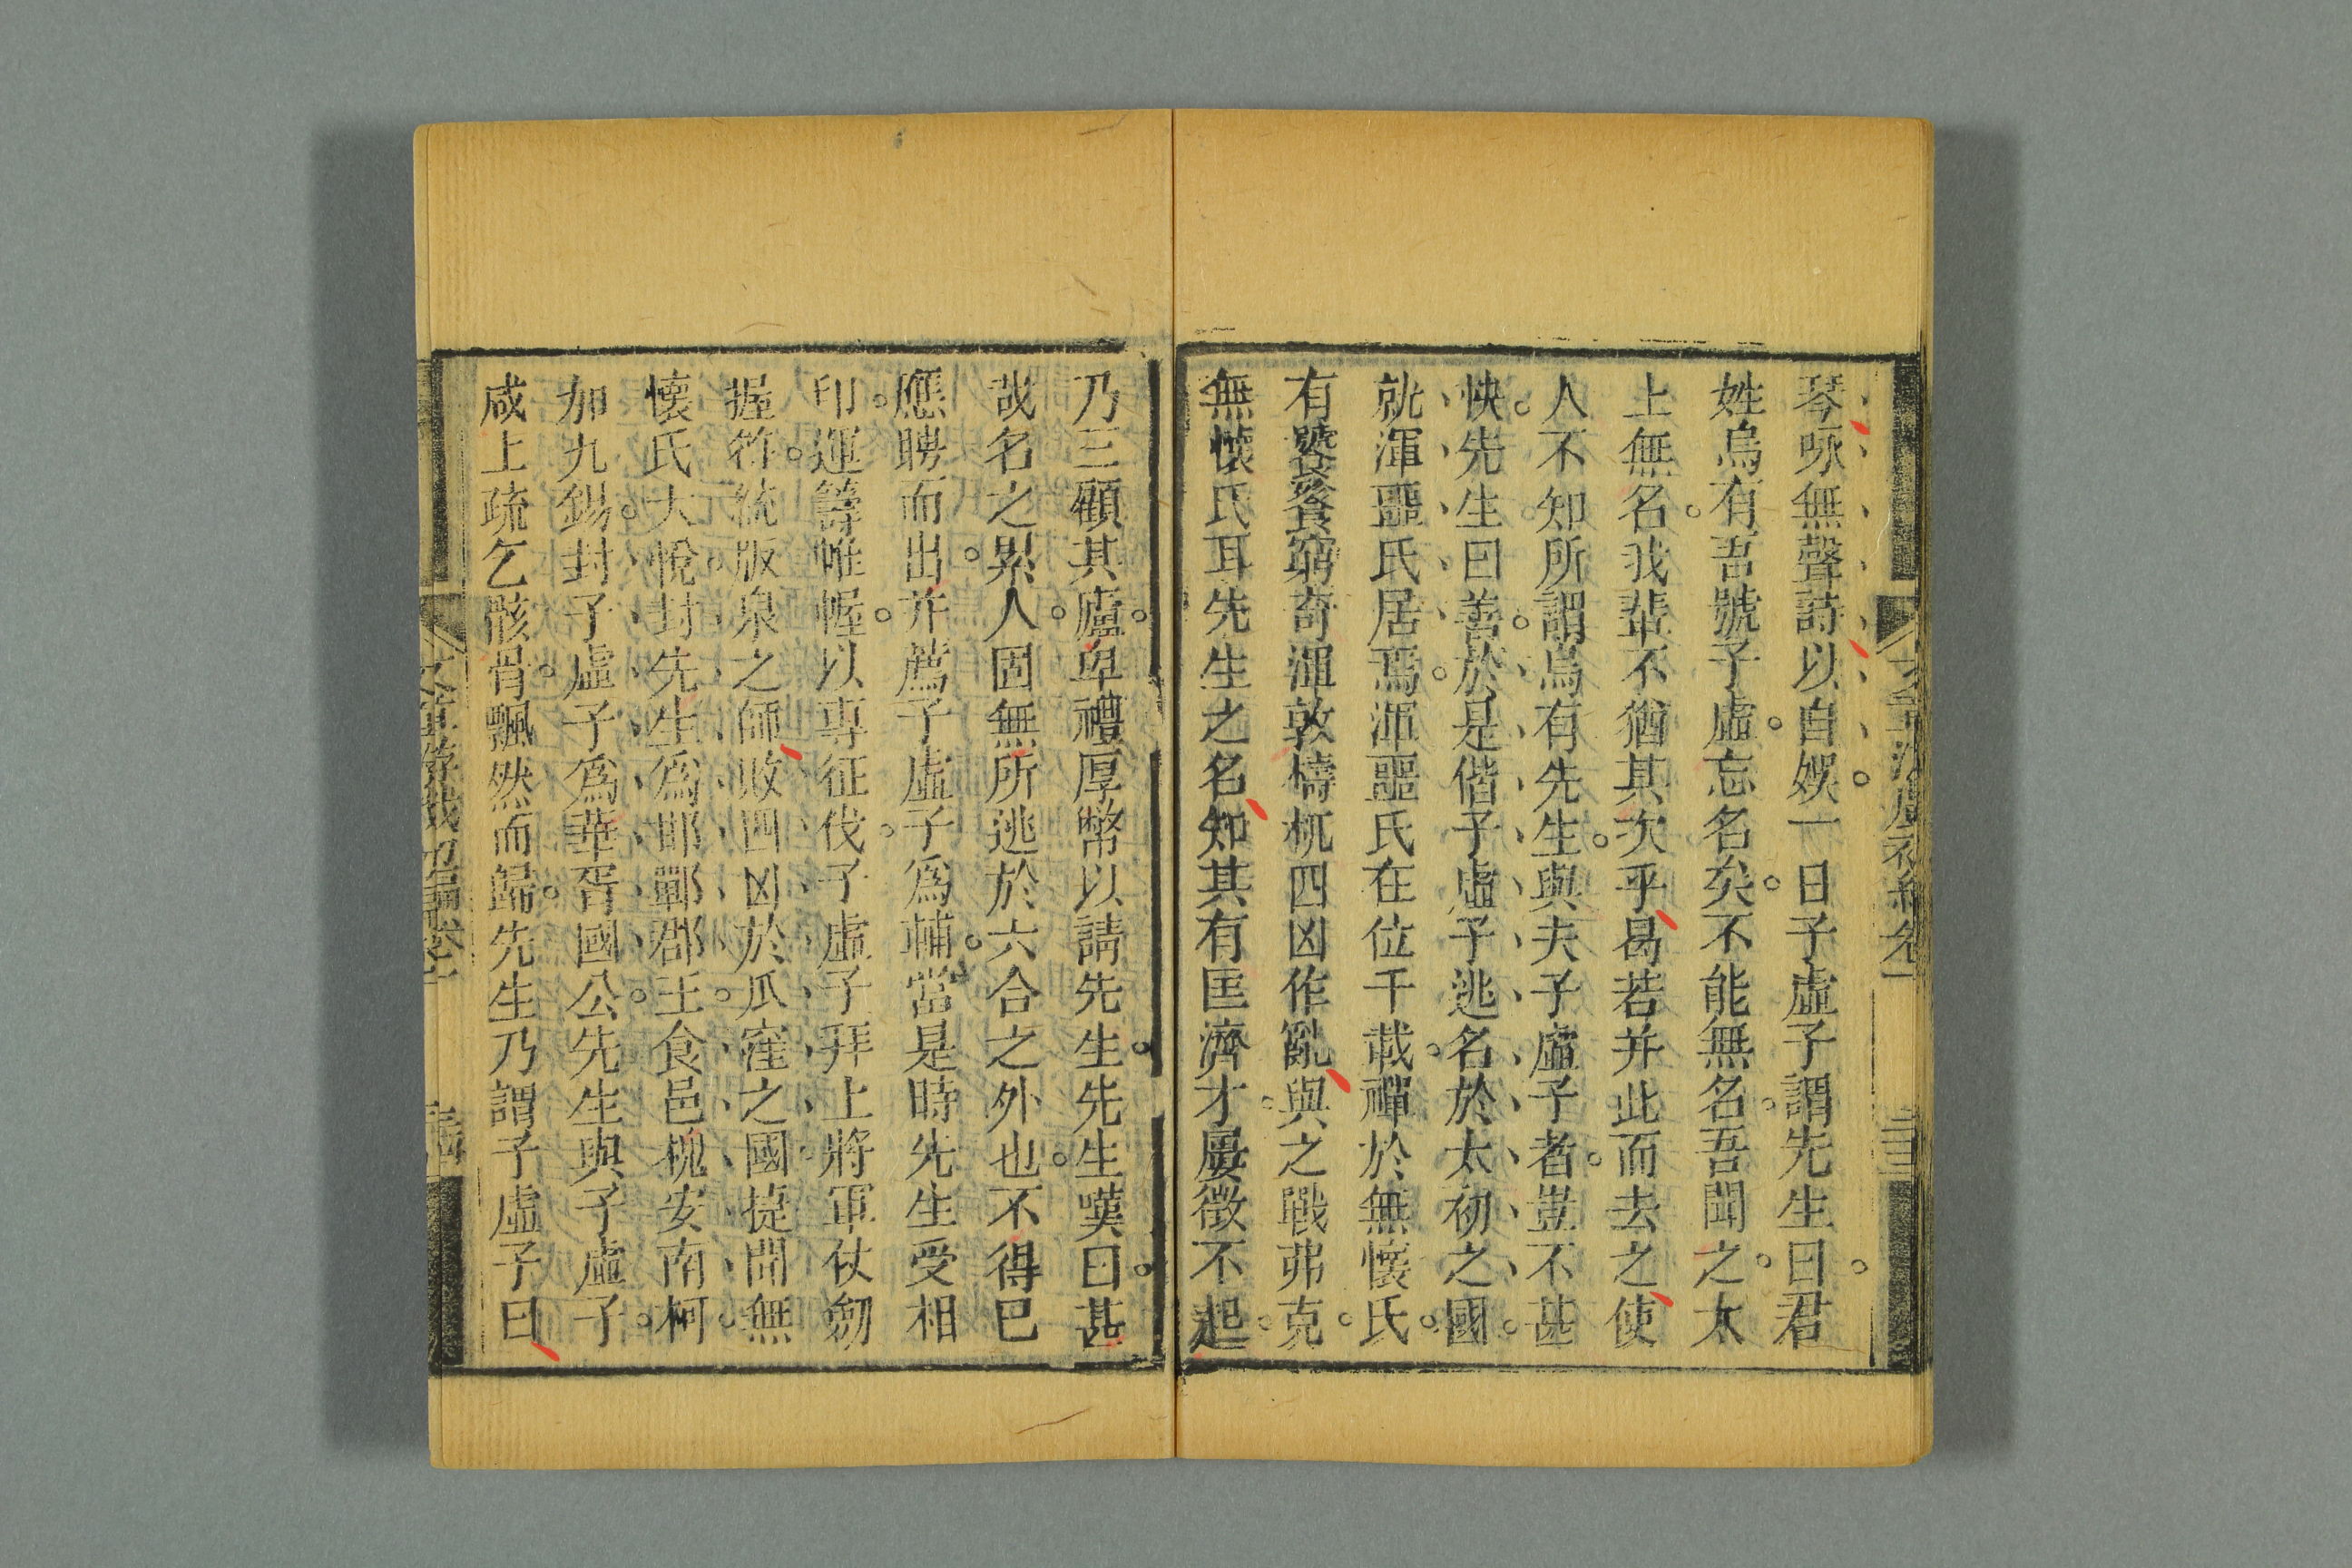 琴咏無聲詩以自娛一日子虛子謂先生曰君
姓烏有吾號子虛忘名矣不能無名吾聞之太
上無名我輩不猶其次乎曷若并此而去之使
人不知所謂烏有先生與夫子虛子者豈不甚
快先生曰善於是偕子虛子逃名於太初之國
就渾噩氏居焉渾噩氏在位千載禪於無懷氏
有饕餮窮奇渾敦檮杌四凶作亂與之戰弗克
無懷氏耳先生之名知其有匡濟才屢徵不起
乃三顧其廬卑禮厚幣以請先生先生嘆曰甚
哉名之累人固無所逃於六合之外也不得已
應聘而出并薦子虛子爲輔當是時先生受相
印運籌帷幄以專征伐子虛子拜上將軍仗劒
握符統版泉之師敗四凶於瓜窪之國捷聞無
懷氏大悅封先生爲邯鄲郡王食邑槐安南柯
加九錫封子虛子爲華胥國公先生與子虛子
咸上疏乞骸骨飄然而歸先生乃謂子虛子曰